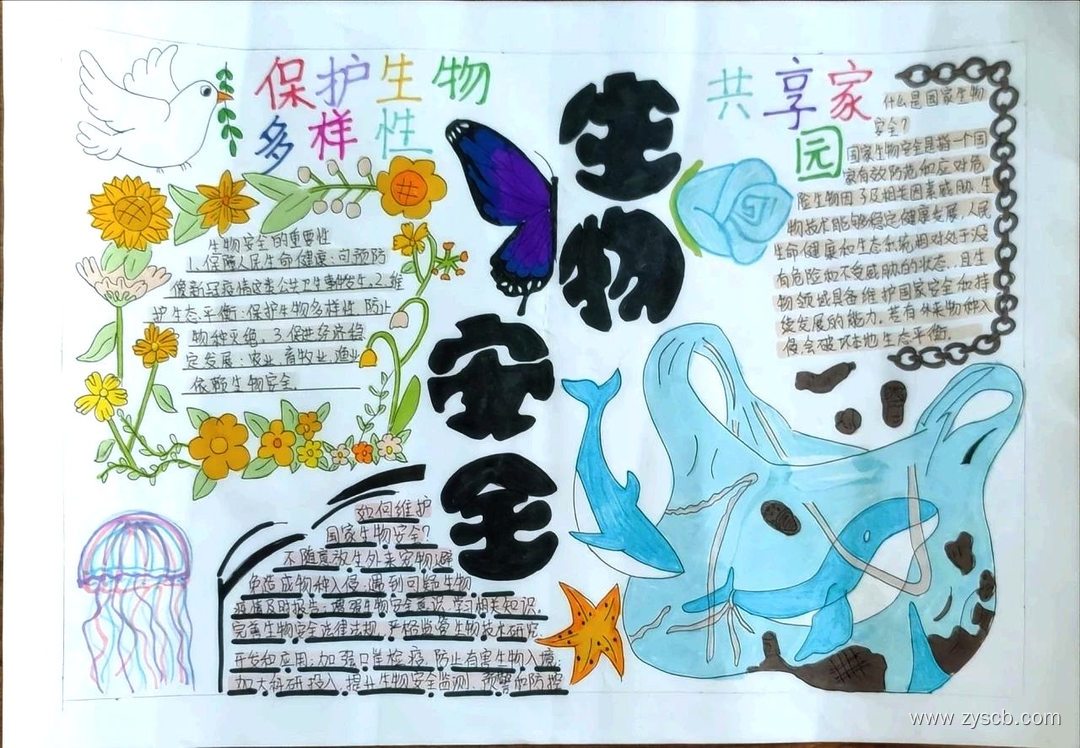 保护生物
多样性
生物安全
共享家
园
生物安全的重要性
1.保障人民生命健康:可预防
像新冠疫情这类公共卫生事件发生.2.维
护生态平衡:保护生物多样性,防止
物种灭绝.3.促进经济稳
定发展:农业,畜牧业,渔业
依赖生物安全.
什么是国家生物
安全?
国家生物安全是指一个国
家有效防范和应对危
险生物因子及相关因素威胁,生
物技术能够稳定健康发展,人民
生命健康和生态系统相对处于没
有危险和不受威胁的状态,且生
物领域具备维护国家安全和持
续发展的能力。若有外来物种入
侵会破坏本地生态平衡.
如何维护
国家生物安全?
不随意放生外来宠物避
免造成物种入侵,遇到可疑生物
疫情及时报告;增强生物安全意识,学习相关知识.
完善生物安全法律法规,严格监管生物技术研究.
开发和应用;加强口岸检疫,防止有害生物入境,
加大科研投入,提升生物安全监测、预警和防控
www.zyscb.com